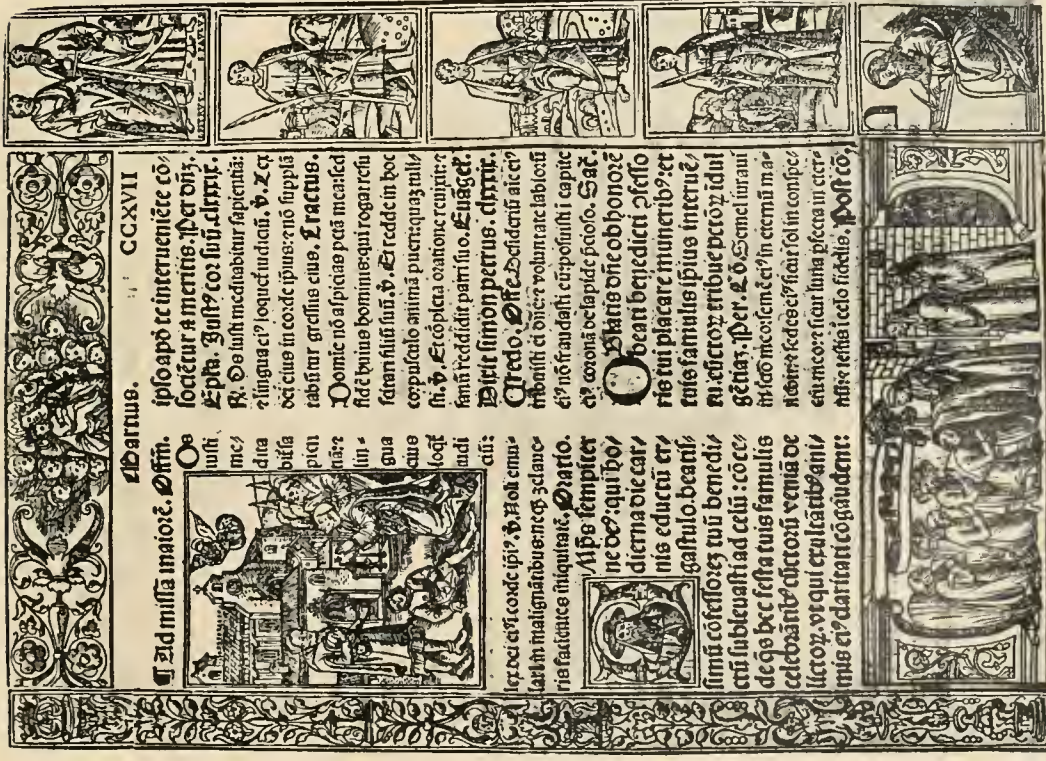 Martius. CCXVII
¶ Ad missã maiorẽ. Offm̃.
Os
iusti
me/
dita
bitſa
pien
tiã: ⁊
lin =
gua
eius
loqͭ
iudi
ciũ:
lex dei ei⁹ ĩ corde ipi⁹. ℣. Noli emu=
lari in malignãtibus: neqꝫ zelaue=
ris faciẽtes iniquitatẽ. Oratio.
OMp̃s sempiter
ne de⁹: qui ho/
dierna die car/
nis eductũ er/
gastulo. beatis/
simũ cõfessorẽ tuũ benedi/
ctũ subleuasti ad celũ: cõce/
de q̃s hec festa tuis famulis
celebrãtib⁹ cũctorũ veniã de
lictoꝝ. vt qui exultãtib⁹ ani/
mis ei⁹ claritati cõgaudent:
ipso apð te interueniẽte cõ/
sociẽtur ⁊ meritis. Per dñz.
Ep̃la. Just⁹ cor suũ. clxxxix.
℞. Os iusti meditabitur sapientiã:
⁊ lingua ei⁹ loquet̃ iudiciũ. ℣. Lex
dei eius in corde ipsius: ⁊ nõ supplã
tabũtur gressus eius. Tractus.
Domie nõ aspicias pctã mea: sed
fidẽ huius hominis: qui rogat resu
scitari filiũ suũ. ℣. Et redde in hoc
corpusculo animã puero: quaz tuli/
sti. ℣. Et cõpleta oratione: reuixit: ⁊
sanũ reddidit patri suo. Euãgel'.
Dixit simon petrus. clxxxix.
Credo. Offe. Desideriũ aie ei⁹
tribuisti ei dñe: ⁊ voluntate labiorũ
ei⁹ nõ fraudasti eũ: posuisti ĩ capite
ei⁹ coronã de lapide p̃cioso. Sac̃.
Oblatis dñe ob honorẽ
beati benedicti ɔfesso
ris tui placare munerib⁹: et
tuis famulis ipsius interuẽ/
tu. cũctoꝝ tribue pctõꝝ idul
gẽtiaz. Per. Cõ. Semel iuraui
in sctõ meo: semẽ ei⁹ in eternũ ma=
nebit: ⁊ sedes ei⁹ sicut sol in conspe/
ctu meo: ⁊ sicut luna pfecta in eter=
nũ: ⁊ testis ĩ celo fidelis. Postcõ.